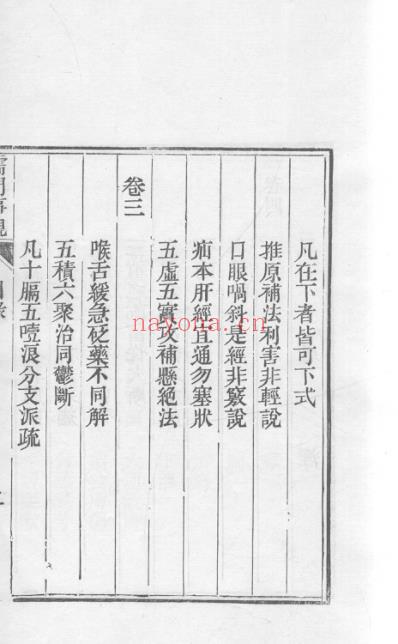 凡在下者皆可下式
推原補法利害非輕說
口眼喎斜是經非竅說
疝本肝經宜通勿塞狀
五虛五實攻補懸絕法
卷三
喉舌緩急砭藥不同解
五積六聚治同鬱斷
凡十膈五噎浪分支派疏
儒門事親
目錄
nayona.cn